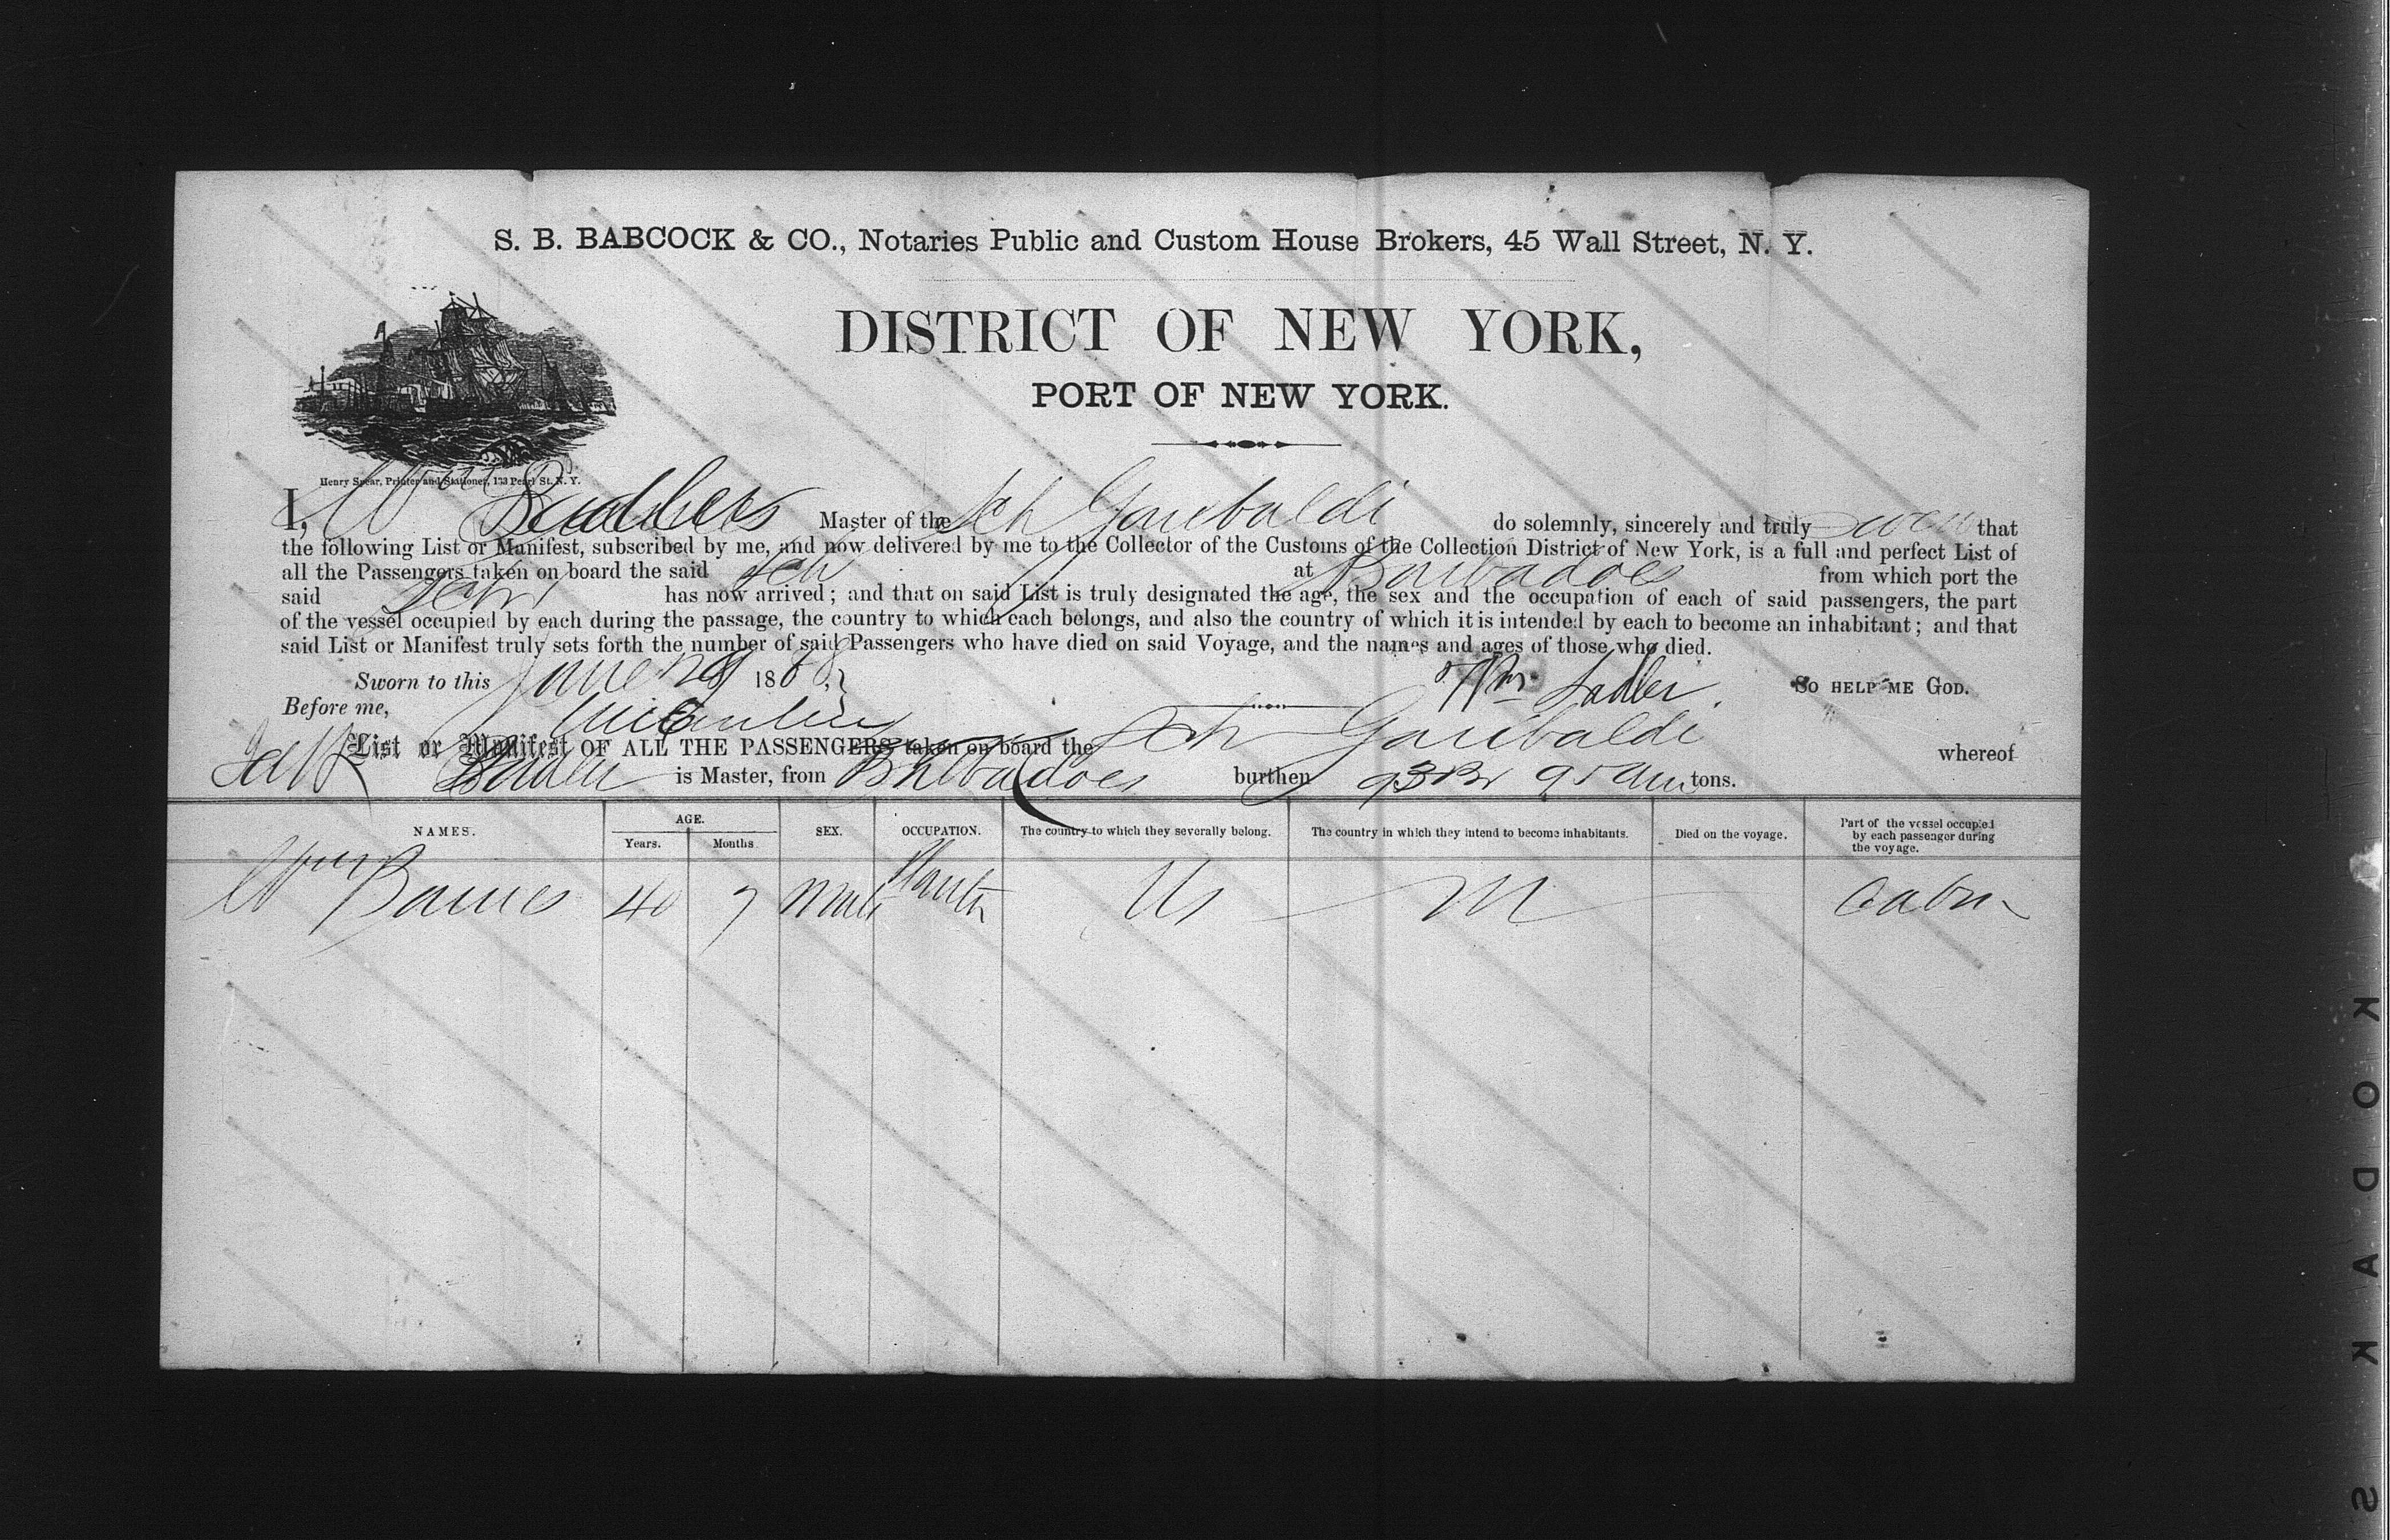 S. B. BABCOCK & CO., Notaries Public and Custom House Brokers, 45 Wall Street, N. Y.
DISTRICT OF NEW YORK,
PORT OF NEW YORK.
Henry Spear, Printer and Stationer, 133 Pearl St. N. Y.
I, Wm Master of the Sch Garibaldi do solemnly, sincerely and truly swear that
the following List or Manifest, subscribed by me, and now delivered by me to the Collector of the Customs of the Collection District of New York, is a full and perfect List of
all the Passengers taken on board the said Sch at Barbadoes from which port the
said Sch has now arrived; and that on said List is truly designated the age, the sex and the occupation of each of said passengers, the part
of the vessel occupied by each during the passage, the country to which each belongs, and also the country of which it is intended by each to become an inhabitant; and that
said List or Manifest truly sets forth the number of said Passengers who have died on said Voyage, and the names and ages of those who died.
Sworn to this June 1868 Wm Sadler. SO HELP ME GOD.
Before me,
List or Manifest OF ALL THE PASSENGERS taken on board the Sch Garibaldi whereof
is Master, from Barbadoes burthen 93 Br 95 Am tons.
NAMES. AGE. SEX. OCCUPATION. The country to which they severally belong. The country in which they intend to become inhabitants. Died on the voyage. Part of the vessel occupied
by each passenger during
the voyage.
Years. Months
Wm 40 7 Male US Cabin
KODAK S